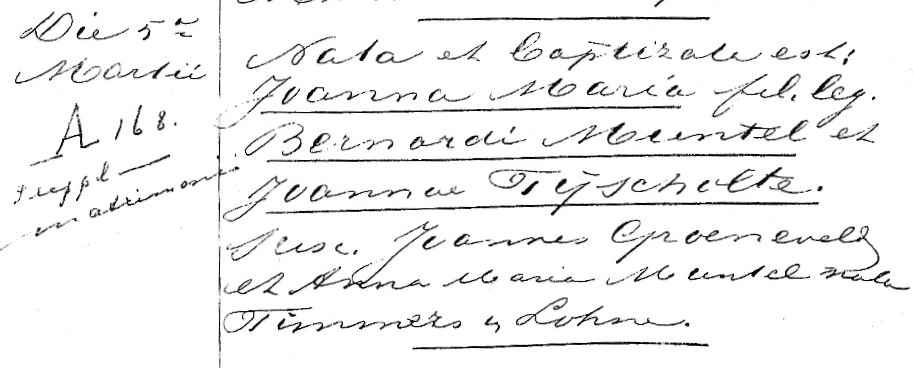 Die 5ᵃ
Martii
A 168.
suppl
matrimoni.
Nata et baptizata est:
Joanna Maria fil. leg.
Bernardi Muntel et
Joannae Tijscholte.
Susc. Joannes Groeneveld
et Anna Maria Muntel nata
Timmers ex Lohne.